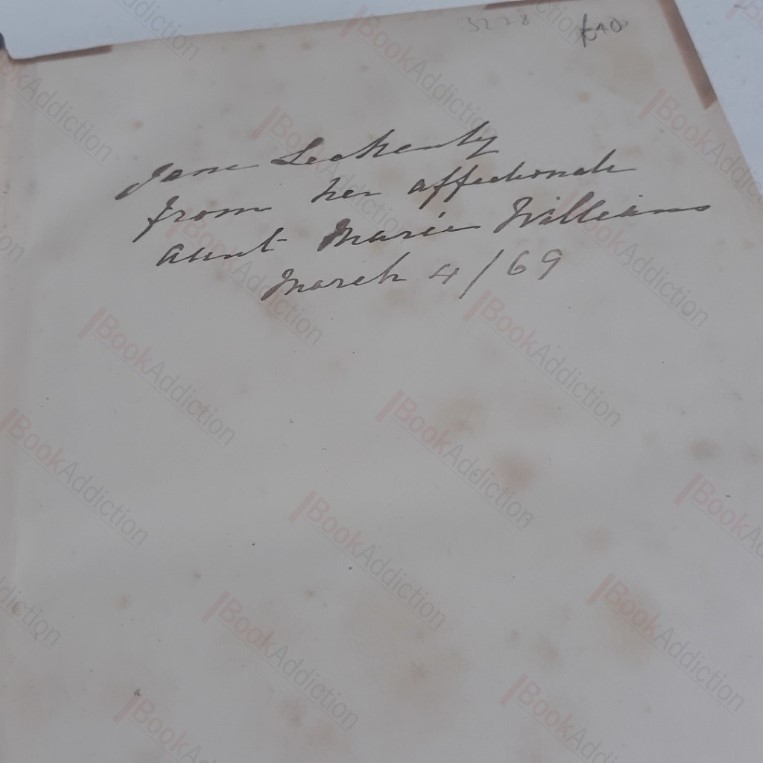 5278 £40
Jane Leckenby
from her affectionate
aunt Maria Williams
March 4/69
BookAddiction